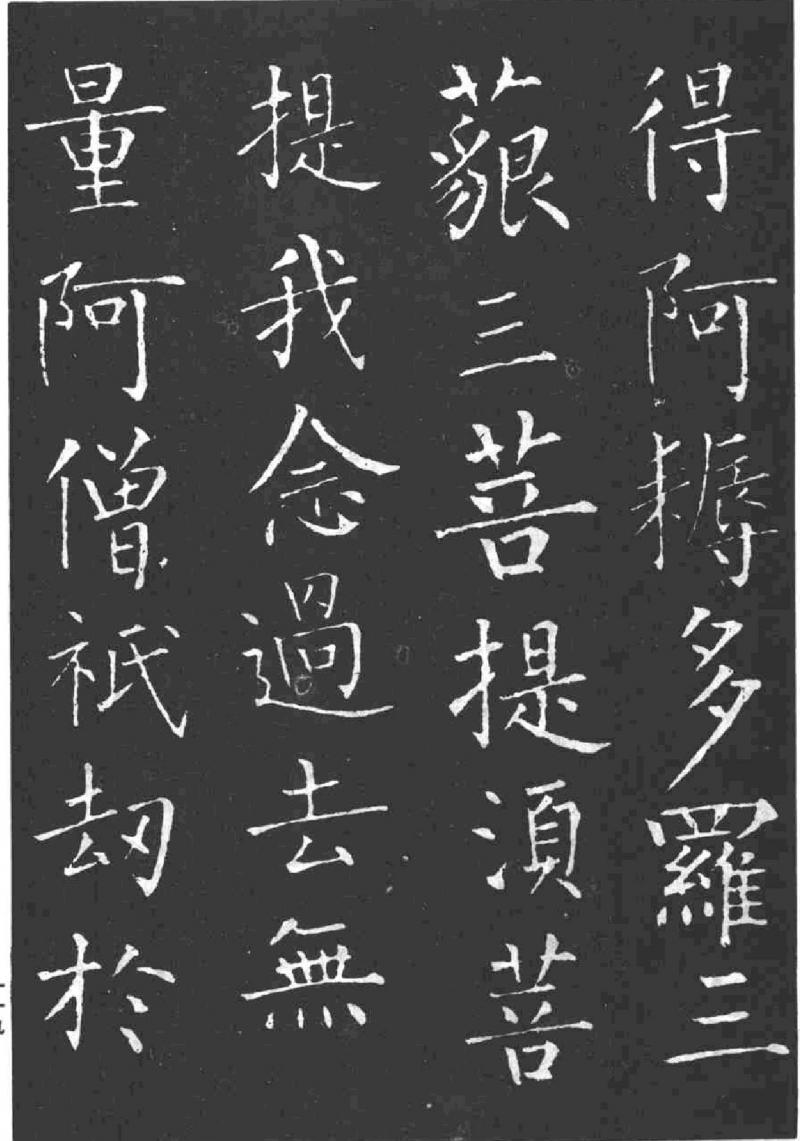 得阿耨多羅三
藐三菩提須菩
提我念過去無
量阿僧祇劫於